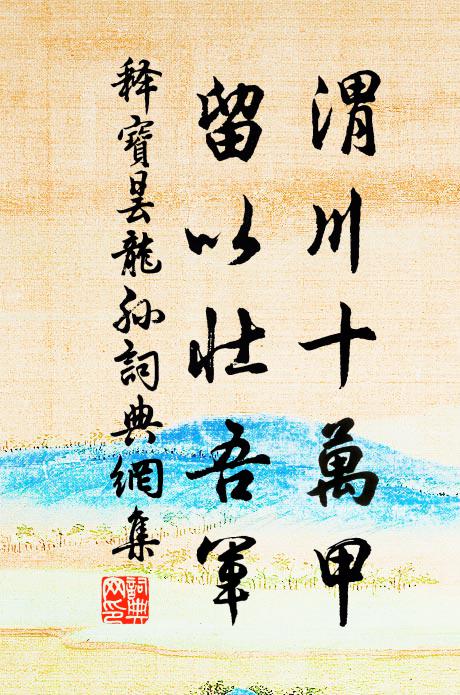 渭川十萬甲
留以壮吾軍
释寶曇龍孙詞典網集
詞典网印